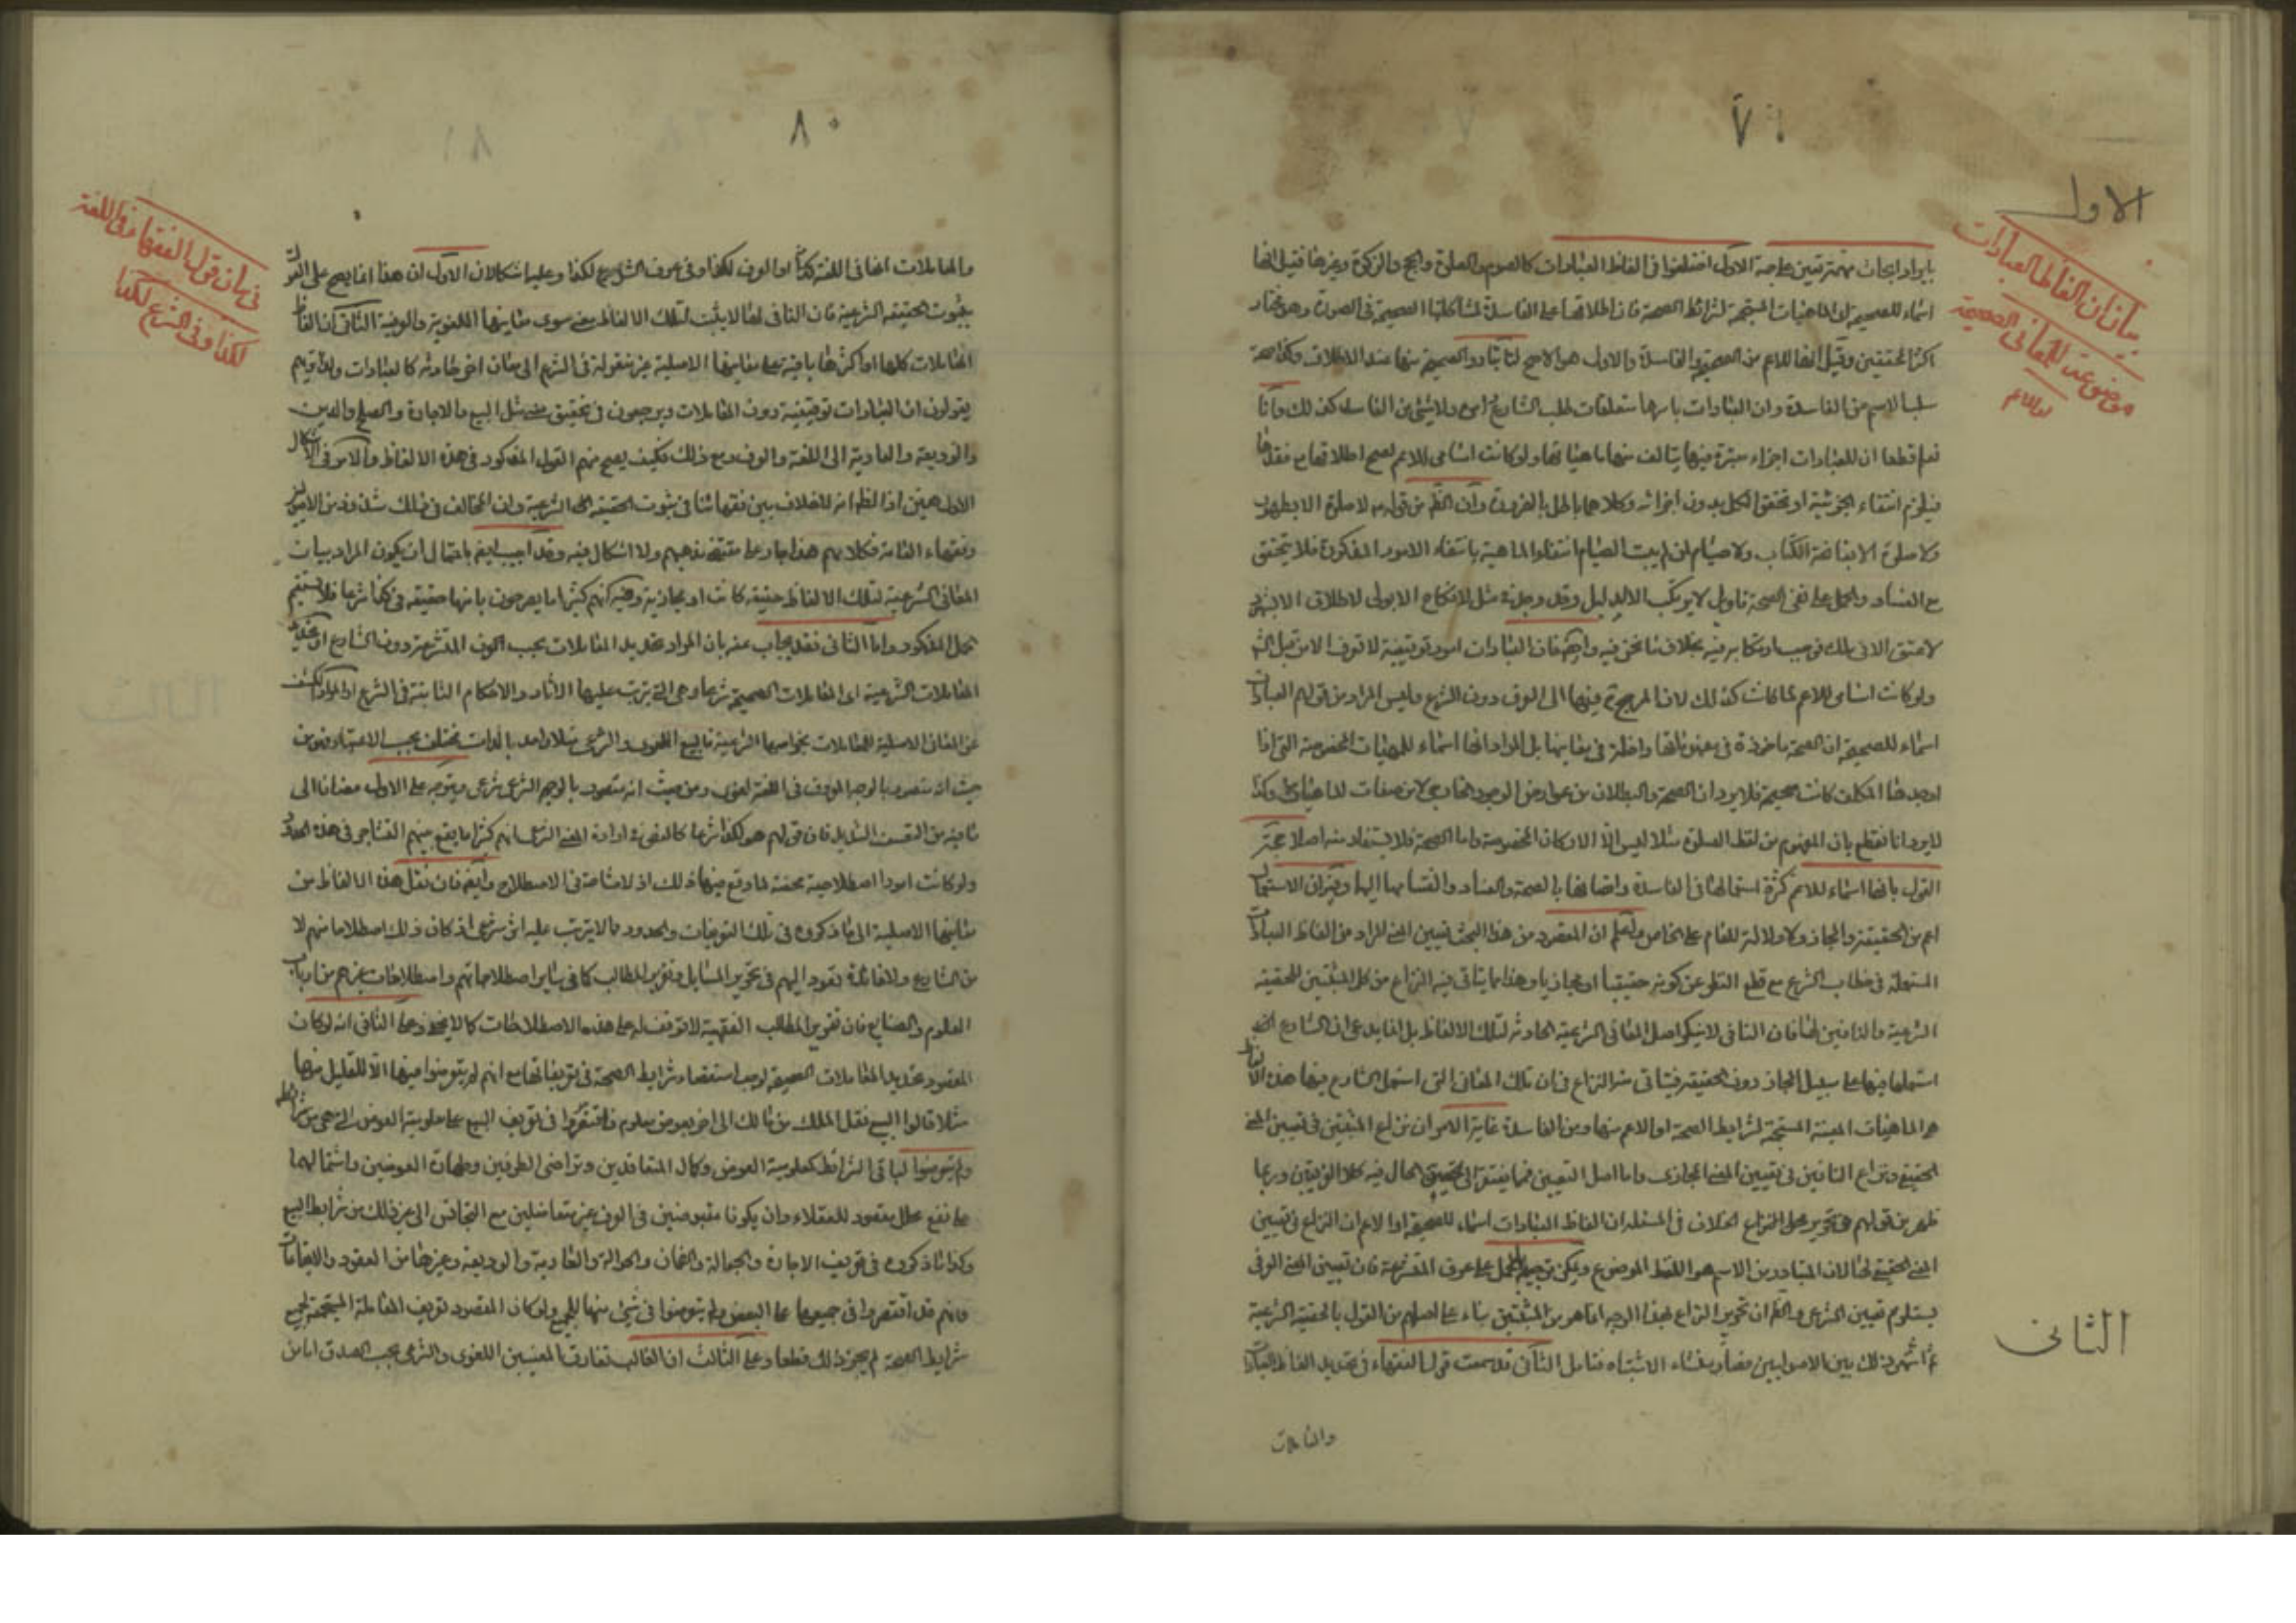 ٧٠
الاول
بيان ان الفاظ العبادات
موضوعة للمعانى الصحيحة
او للاعم
بايراد ابحاث مهمة تبتنى عليها صحة الاول اختلفوا فى الفاظ العبادات كالصوم والصلوة والحج والزكوة وغيرها فقيل انها
اسماء للصحيحة اى الماهيات المستجمعة لشرائط الصحة فان اطلاقها على الفاسدة لمشاكلتها الصحيحة فى الصورة وهو مختار
اكثر المحققين وقيل انها للاعم من الصحيحة والفاسدة والاول هو الاصح لنا تبادر الصحيحة منها عند الاطلاق وصحة
سلب الاسم من الفاسدة وان العبادات باسرها متعلقات طلب الشارع وامره ولا شئ من الفاسدة كذلك وانا
نعلم قطعا ان للعبادات اجزاء معتبرة فيها يتالف منها ماهياتها ولو كانت اسامى للاعم لصح اطلاقها مع فقدها
فيلزم انتفاء الجزئية او تحقق الكل بدون اجزائه وكلاهما باطل بالضرورة وان الظ من قولهم لا صلوة الا بطهور
ولا صلوة الا بفاتحة الكتاب ولا صيام لمن لم يبت الصيام انتفاء الماهية بانتفاء الامور المذكورة فلا يتحقق
مع الفساد والحمل على نفى الصحة تاويل لا يرتكب الا لدليل وقد وجد فى مثل لا نكاح الا بولى لا طلاق الا بشهود
لا عتق الا فى ملك فوجب ارتكابه فيه بخلاف ما نحن فيه وايض فان العبادات امور توقيفية لا تعرف الا من قبل الشرع
ولو كانت اسامى للاعم لما كانت كذلك لان المرجع فيها الى العرف دون الشرع وليس المراد من قولهم العبادات
اسماء للصحيحة ان الصحة ماخوذة فى مفهوماتها داخلة فى معانيها بل المراد انها اسماء للمهيات المخصوصة التى اذا
اوجدها المكلف كانت صحيحة فلا يرد ان الصحة والبطلان من عوارض الوجود الخارجى لا من صفات الماهيات وكذا
لا يرد انا نقطع بان المفهوم من لفظ الصلوة مثلا ليس الا الاركان المخصوصة واما الصحة فلا يستفاد منه اصلا حجة
القول بانها اسماء للاعم كثرة استعمالها فى الفاسدة واتصافها بالصحة والفساد وانقسامها اليها وفيه ان الاستعمال
اعم من الحقيقة والمجاز ولا دلالة للعام على الخاص وليعلم ان المقصود من هذا البحث تعيين المعنى المراد من الفاظ العبادات
المستعملة فى خطاب الشرع مع قطع النظر عن كونه حقيقيا او مجازيا وهذا مما يتاتى فيه النزاع من كل المثبتين للحقيقة
الشرعية والنافين لها فان النافى لا ينكر اصل المعانى الشرعية الحادثة لتلك الالفاظ بل انما يدعى ان الشارع انما
استعملها فيها على سبيل المجاز دون الحقيقة فيتاتى منه النزاع فى ان تلك المعانى التى استعمل الشارع فيها هذه الالفاظ
هو الماهيات المعينة المستجمعة لشرايط الصحة او الاعم منها ومن الفاسدة غاية الامر ان نزاع المثبتين فى تعيين المعنى
الحقيقى ونزاع النافين فى تعيين المعنى المجازى واما اصل التعيين فمما يفتقر الى تحقيق الحال فيه كلا الفريقين وربما
ظهر من قولهم فى تحرير محل النزاع اختلاف فى المسئلة ان الفاظ العبادات اسماء للصحيحة او الاعم ان النزاع فى تعيين
المعنى الحقيقى لها لان المتبادر من الاسم هو اللفظ الموضوع ويمكن توجيهه بالحمل على عرف المتشرعة فان تعيين المعنى العرفى
يستلزم تعيين الشرعى والظ ان تحرير النزاع بهذا الوجه انما هو من المثبتين بناء على اصلهم من القول بالحقيقة الشرعية
ثم اشتهر ذلك بين الاصوليين فصار منشاء الاشتباه فتامل الثانى قد سمعت قول الفقهاء فى تحديد الفاظ العبادات
الثانى
والمعاملات
٨٠
فى بيان قول الفقهاء فى اللغة
لكذا وفى الشرع لكذا
والمعاملات انها فى اللغة لكذا او العرف لكذا وفى عرف الشارع لكذا وعليه اشكالان الاول ان هذا انما يصح على القول
بثبوت الحقيقة الشرعية فان النافى لها لا يثبت لتلك الالفاظ معنى سوى معانيها اللغوية والعرفية الثانى ان الفاظ
المعاملات كلها او اكثرها باقية على معانيها الاصلية غير منقولة فى الشرع الى معان اخر حادثة كالعبادات ولذا تريهم
يقولون ان العبادات توقيفية دون المعاملات ويرجعون فى تحقيق معنى مثل البيع والاجارة والصلح والدين
والوديعة والعارية الى اللغة والعرف ومع ذلك فكيف يصح منهم القول المذكور فى هذه الالفاظ والامر فى الاشكال
الاول هين اذ الظ انه لا خلاف بين فقهائنا فى ثبوت الحقيقة الشرعية وان المخالف فى ذلك شذوذ من الاصوليين
وفقهاء العامة فكلامهم هذا جار على مقتضى مذهبهم ولا اشكال فيه وقد اجيب ايض باحتمال ان يكون المراد بيان
المعانى الشرعية لتلك الالفاظ حقيقة كانت او مجازية وفيه انهم كثيرا ما يصرحون بانها حقيقة فى كذا شرعا فلا يستقيم
الحمل المذكور واما الثانى فقد يجاب عنه بان المراد تحديد المعاملات بحسب العرف المتشرعة دون الشارع او تحديد
المعاملات الشرعية اى المعاملات الصحيحة شرعا وهى التى يترتب عليها الاثار والاحكام الثابتة فى الشرع او المراد الكشف
عن المعانى الاصلية للمعاملات بخواصها الشرعية فالبيع اللغوى والشرعى مثلا واحد بالذات مختلف بحسب الاعتبار فهو من
حيث انه متصور بالوجه المعروف فى اللغة لغوى ومن حيث انه متصور بالوجه الشرعى شرعى ويتوجه على الاول مضافا الى
ما فيه من التعسف الشديد فان قولهم هو لكذا شرعا كالنص فى ارادة المعنى الشرعى انهم كثيرا ما يقع بينهم التشاجر فى هذه الحدود
ولو كانت امورا اصطلاحية محضة لما وقع فيها ذلك اذ لا مشاحة فى الاصطلاح وايض فان نقل هذه الالفاظ من
معانيها الاصلية الى ما ذكروه فى تلك التعريفات والحدود مما لا يترتب عليه اثر شرعى اذ كان ذلك اصطلاحا منهم لا
من الشارع ولا فائدة تعود اليهم فى تحرير المسايل وتقرير المطالب كما فى ساير اصطلاحاتهم واصطلاحات غيرهم من ارباب
العلوم والصنايع فان تقرير المطالب الفقهية لا توقف له على هذه الاصطلاحات كما لا يخفى وعلى الثانى انه لو كان
المقصود تحديد المعاملات الصحيحة لوجب استقصاء شرايط الصحة فى تعريفاتها مع انهم لم يتعرضوا فيها الا للقليل منها
مثلا قالوا البيع نقل الملك من مالك الى اخر بعوض معلوم فاقتصروا فى تعريف البيع على معلومية العوض التى هى من شرائطه
ولم يتعرضوا لباقى الشرائط كمعلومية العوض وكمال المتعاقدين وتراضى الطرفين وطهارة العوضين واشتمالهما
على نفع محلل مقصود للعقلاء وان يكونا مقبوضين فى الصرف غير متفاضلين مع التجانس الى غير ذلك من شرايط البيع
وكذا ما ذكروه فى تعريف الاجارة والجعالة والضمان والحوالة والعارية والوديعة وغيرها من العقود والايقاعات
فانهم قد اقتصروا فى جميعها على البعض ولم يتعرضوا فى شئ منها للجميع ولو كان المقصود تعريف المعاملة المستجمعة لجميع
شرايط الصحة لم يجز ذلك قطعا وعلى الثالث ان الغالب تفارق المعنيين اللغوى والشرعى بحسب الصدق اما من